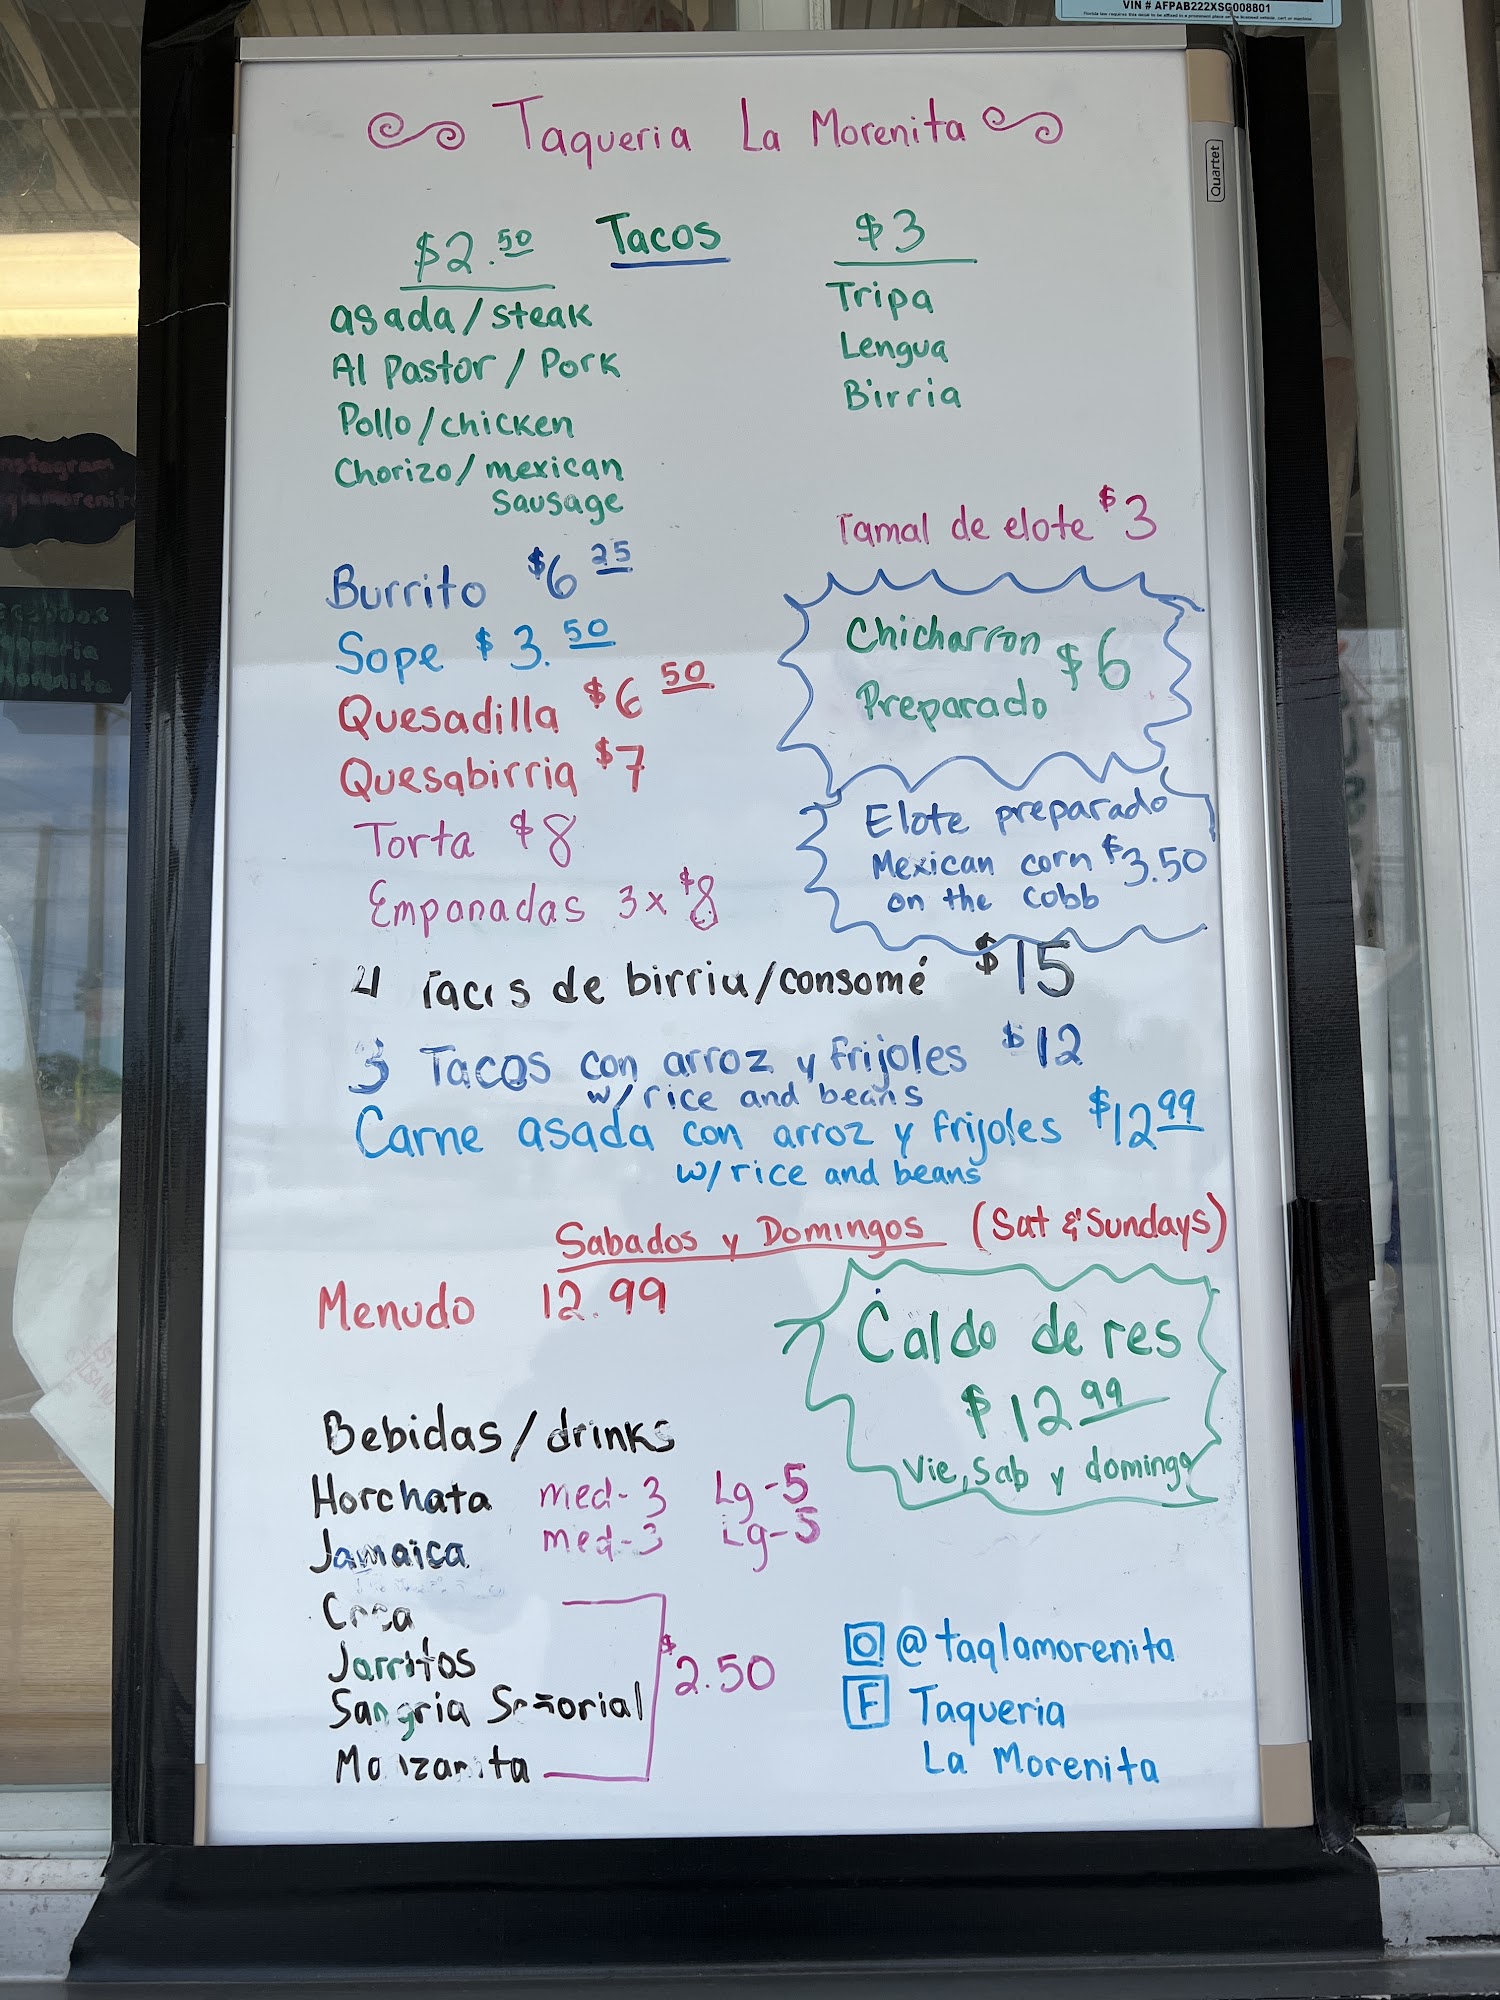 VIN # AFPAB222XSG008801
Quartet
Taqueria La Morenita
Tacos
$2.50
asada/steak
Al Pastor / Pork
Pollo/chicken
Chorizo/mexican
Sausage
$3
Tripa
Lengua
Birria
Tamal de elote $3
Burrito $6 25
Sope $3.50
Quesadilla $6 50
Quesabirria $7
Torta $8
Empanadas 3x $8
Chicharron
Preparado $6
Elote preparado
Mexican corn $3.50
on the cobb
4 Tacos de birria/consomé $15
3 Tacos con arroz y frijoles $12
w/rice and beans
Carne asada con arroz y frijoles $12 99
w/rice and beans
Sabados y Domingos (Sat & Sundays)
Menudo 12.99
Caldo de res
$12 99
Vie, Sab y domingo
Bebidas/drinks
Horchata med-3 Lg-5
Jamaica med-3 Lg-5
Coca
Jarritos
Sangria Señorial
Manzanita
$2.50
@taqlamorenita
F Taqueria
La Morenita